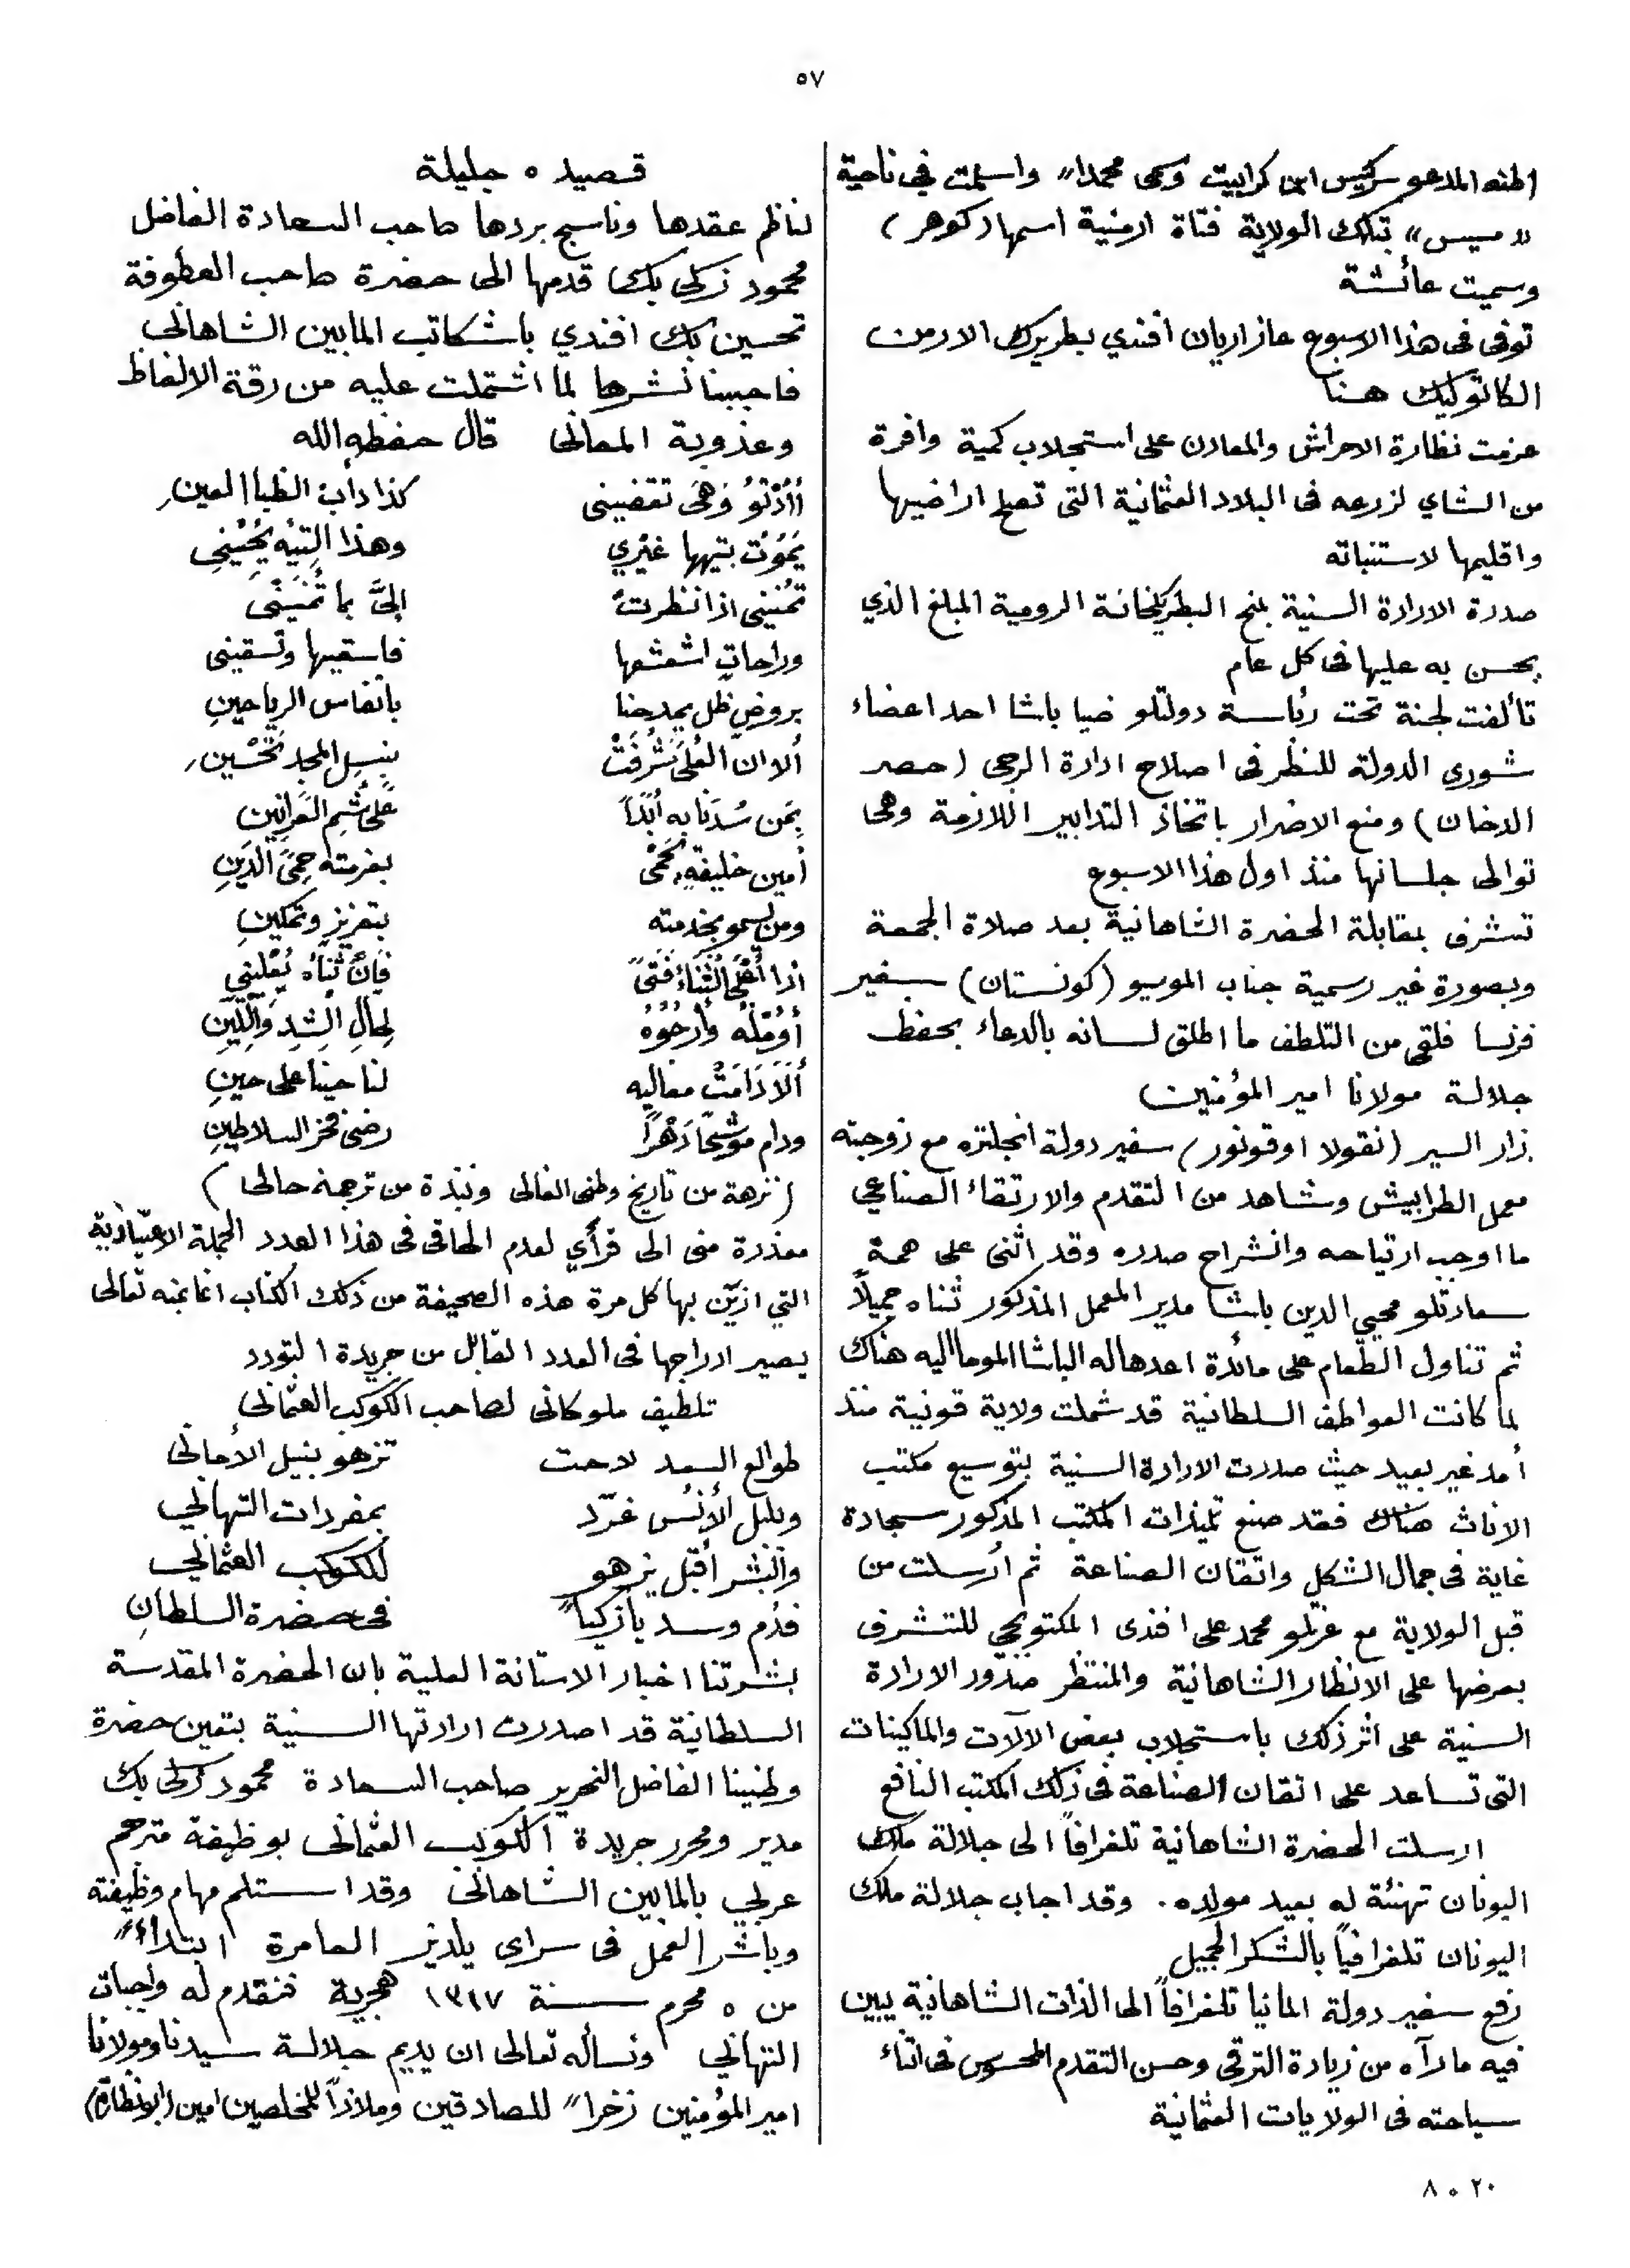 ٥٧
اطنه المدعو سركيس ابن كرابيت وسمى محمدا" واسلمت في ناحية
"سيس" بتلك الولاية فتاة ارمنية اسمها (كوهر)
وسميت عائشة
توفى فى هذا الاسبوع عازاريان افندي بطريرك الارمن
الكاتوليك هنا
عزمت نظارة الاحراش والمعادن على استجلاب كمية وافرة
من الشاي لزرعه فى البلاد العثمانية التى تصلح اراضيها
واقليمها لاستنباته
صدرة الارادة السنية بمنح البطريكخانة الرومية المبلغ الذي
يحسن به عليها فى كل عام
تألفت لجنة تحت رئاسة دولتلو ضيا باشا احد اعضاء
شورى الدولة للنظر فى اصلاح ادارة الرجى (حصر
الدخان) ومنع الاضرار باتخاذ التدابير اللازمة وهى
توالى جلساتها منذ اول هذا الاسبوع
تشرف بمقابلة الحضرة الشاهانية بعد صلاة الجمعة
وبصورة غير رسمية جناب الموسيو (كونستان) سفير
فرنسا فلقى من التلطف ما اطلق لسانه بالدعاء بحفظ
جلالة مولانا امير المؤمنين
زار السير (نقولا اوقونور) سفير دولة انجلتره مع زوجته
معمل الطرابيش وشاهد من التقدم والارتقاء الصناعي
ما اوجب ارتياحه وانشراح صدره وقد اثنى على همة
سعادتلو محيي الدين باشا مدير المعمل المذكور ثناه جميلاً
ثم تناول الطعام على مائدة اعدها له الباشا الموما اليه هناك
لما كانت العواطف السلطانية قد شملت ولاية قونية منذ
أمد غير بعيد حيث صدرت الارادة السنية بتوسيع مكتب
الاناث هناك فقد صنع تلميذات المكتب المذكور سجادة
غاية فى جمال الشكل واتقان الصناعة ثم أرسلت من
قبل الولاية مع عزتلو محمد على افندى المكتوبجي للتشرف
بعرضها على الانظار الشاهانية والمنتظر صدور الارادة
السنية على اثر ذلك باستجلاب بعض الآلات والماكينات
التى تساعد على اتقان الصناعة فى ذلك المكتب النافع
ارسلت الحضرة الشاهانية تلغرافاً الى جلالة ملك
اليونان تهنئة له بعيد مولده. وقد اجاب جلالة ملك
اليونان تلغرافياً بالشكر الجميل
رفع سفير دولة المانيا تلغرافاً الى الذات الشاهانية يبين
فيه ما رآه من زيادة الترقى وحسن التقدم المحسوس فى اثناء
سياحته فى الولايات العثمانية
قصيده جليلة
لناظم عقدها وناسج بردها صاحب السعادة الفاضل
محمود زكى بك قدمها الى حضرة صاحب العطوفة
تحسين بك افندي باشكاتب المابين الشاهانى
فاحببنا نشرها لما اشتملت عليه من رقة الالفاظ
وعذوبة المعانى قال حفظه الله
أأدْنُو وَهْىَ تقضينى كذا دأبُ الظبا العين
يَمُوْت بتيهها غيْرِي وهذا التِيْه يُحْيينِى
تمُنينى اذا نظرتْ إلىَّ بما تُمَنينى
وراحاتٍ اشعشعها فاسقيها وتسقينى
بروضٍ ظل يمدحنا بانفاس الرياحينِ
ألا ان العُلى شَرُفَتْ بنسل المجد تحْسين
بِمَن سُدنَا به أبَدَاً على شُم العَرانِينِ
أمين خليفةٍ يُحْمَى بعزمته حِمَى الدّينِ
ومن يسمو بخدمته بتعزيزٍ وتمكينِ
اذا أعْلَى الثناءُ فَتىً فإنّ ثَناَه يُعْلينى
أُؤمّلُه وأرجُوْهُ لِحالِ الشدِ واللّينِ
ألَاَ دَامَتْ معاليه لنا حيناً على حينِ
ودام موشحاً دَهْراً رضى فخر السلاطينِ
(نزهة من تاريخ وطنى الغالى ونبذة من ترجمة حالى)
معذرة منى الى قرأي لعدم الحاقى فى هذا العدد الجملة الاعتيادية
التي ازيّن بها كل مرة هذه الصحيفة من ذلك الكتاب انما بمنه تعالى
يصير ادراجها فى العدد القابل من جريدة التودد
تلطيف ملوكانى لصاحب الكوكب العثمانى
طوالع السعد لاحت تزهو بنيل الأمانى
وبلبل الأُنسُ غرّد بمفردات التهاني
والبشر أقبل يزهو للكوكب العثماني
فدُم وسد يا زكياً" فى حضرة السلطانِ
بشرتنا اخبار الاستانة العلية بان الحضرة المقدسة
السلطانية قد اصدرت ارادتها السنية بتعين حضرة
وطنينا الفاضل النحرير صاحب السعادة محمود زكى بك
مدير ومحرر جريدة الكوكب العثمانى بوظيفة مترجم
عربي بالمابين الشاهانى وقد استلم مهام وظيفته
وباشر العمل فى سراى يلدنر العامرة ابتداءً"
من ٥ محرم سنة ١٣١٧ هجرية فنقدم له واجبات
التهاني ونسأله تعالى ان يديم جلالة سيدنا ومولانا
امير المؤمنين زخرا" للصادقين وملاذاً للمخلصين امين (ابونظارة)
٢٠ ٥ ٨